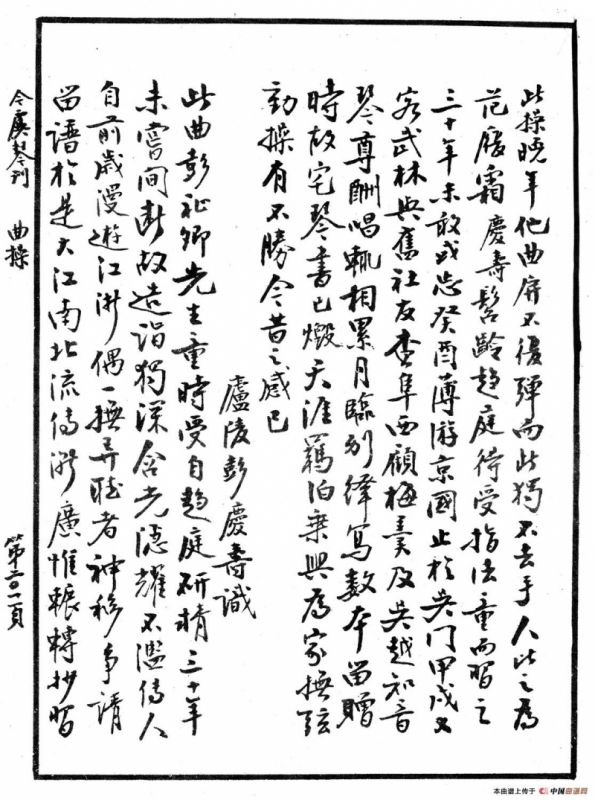 此操晚年他曲屏不復彈而此獨不去手人比之為
范履霜慶壽髫齡趨庭待受指法童而習之
三十年未敢或忘癸酉薄游京國止於吳門甲戌又
客武林與舊社友查阜西顧梅羹及吳越知音
琴尊酬唱輒相累月臨別繹寫數本留贈
時故宅琴書已燬天涯羈泊乘興為家撫弦
動操有不勝今昔之感已
廬陵彭慶壽識
此曲彭祉卿先生童時受自趨庭研精三十年
未嘗間斷故造詣獨深含光隱耀不濫傳人
自前歲漫遊江浙偶一撫弄聽者神移爭請
留譜於是大江南北流傳漸廣惟輾轉抄習
今虞琴刊 曲操
第二〇一頁
本曲谱上传于 中国曲谱网